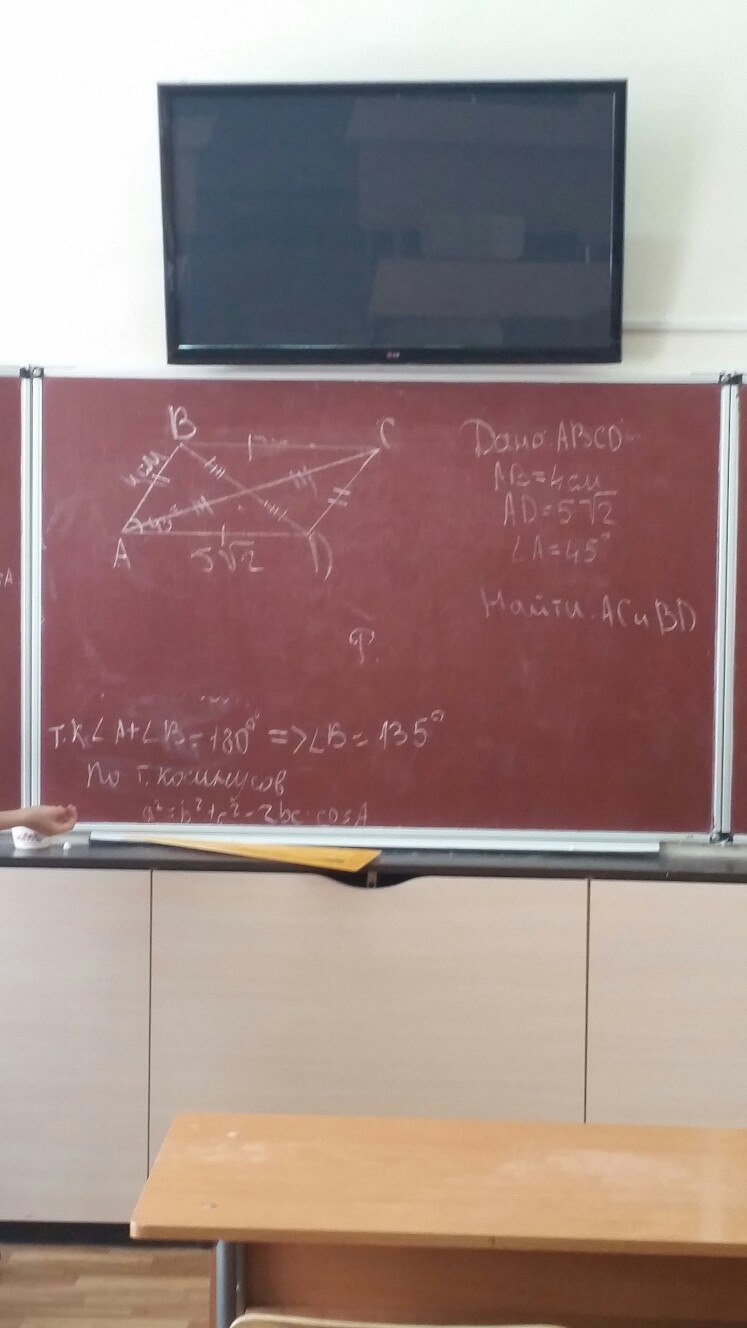 LG
B
C
4 см
45°
A
5√2
D
Дано ABCD
AB=4см
AD=5√2
∠A=45°
Найти AC и BD
т.к ∠A+∠B=180° => ∠B=135°
по т. косинусов
a²=b²+c²-2bc·cosA